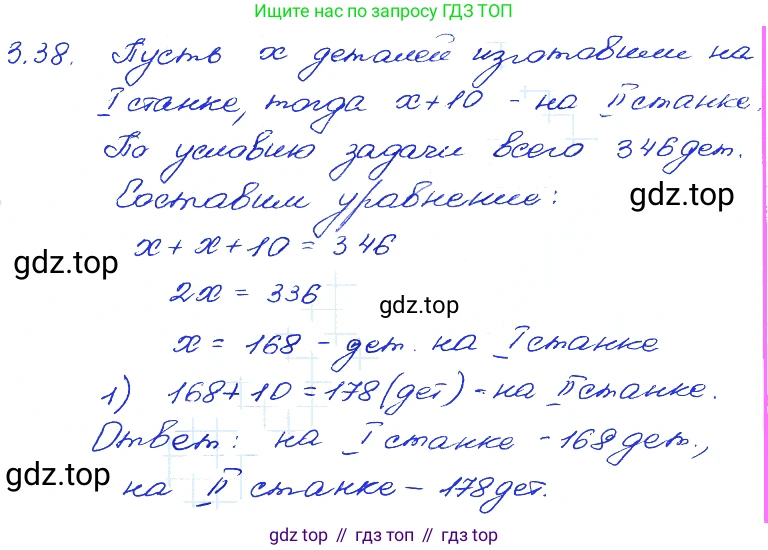 Ищите нас по запросу ГДЗ ТОП
3.38. Пусть x деталей изготовили на
I станке, тогда x+10 - на II станке.
По условию задачи всего 346 дет.
Составим уравнение:
gdz.top
x + x + 10 = 346
gdz.top
2x = 336
gdz.top
x = 168 - дет. на I станке
1) 168 + 10 = 178 (дет) - на II станке.
Ответ: на I станке - 168 дет.,
gdz.top
на II станке - 178 дет.
gdz top // гдз топ // gdz top